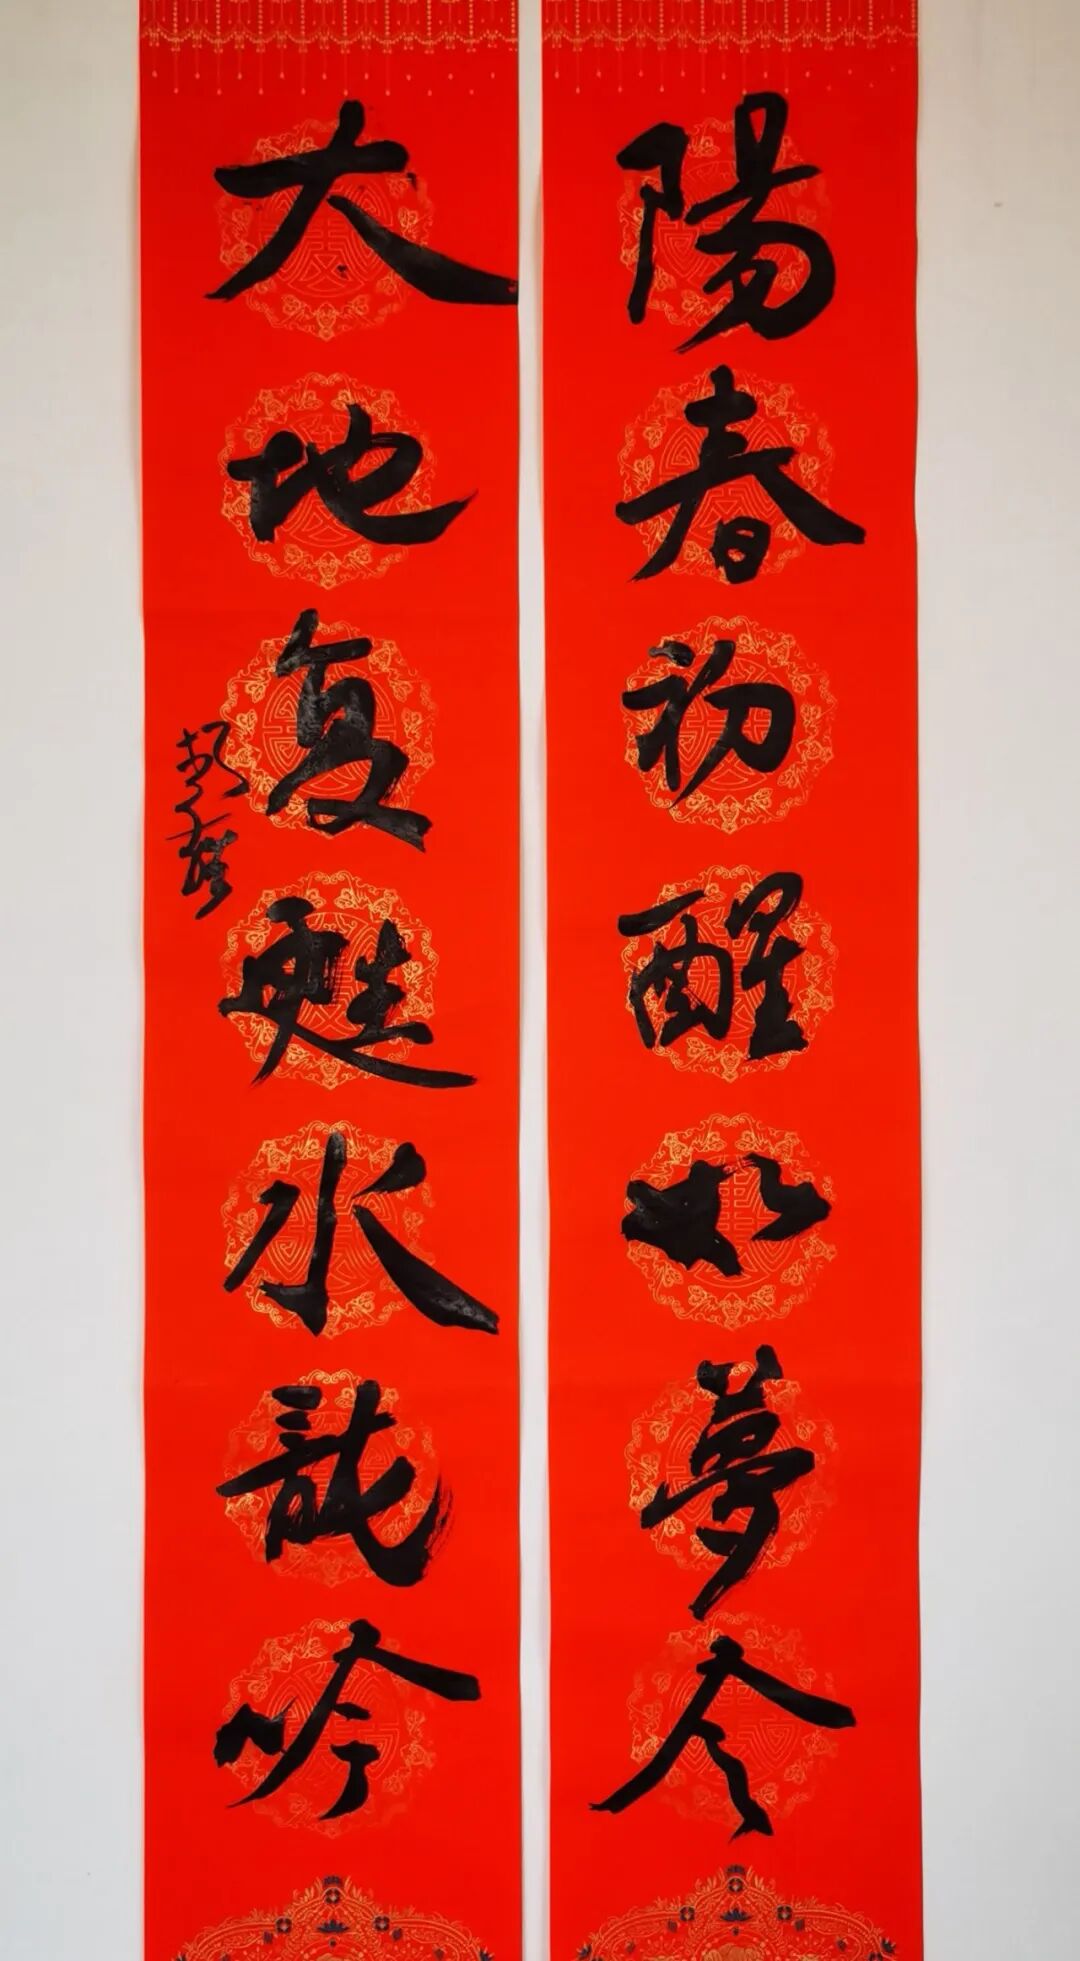 陽春初醒如夢令
大地复甦水龍吟